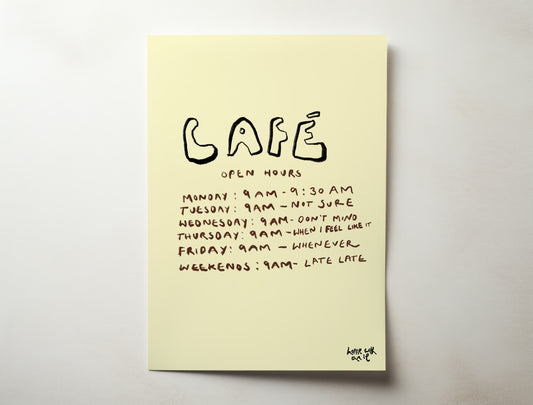 CAFÉ
OPEN HOURS
MONDAY: 9AM - 9:30AM
TUESDAY: 9AM - NOT SURE
WEDNESDAY: 9AM - DON'T MIND
THURSDAY: 9AM - WHEN I FEEL LIKE IT
FRIDAY: 9AM - WHENEVER
WEEKENDS: 9AM - LATE LATE